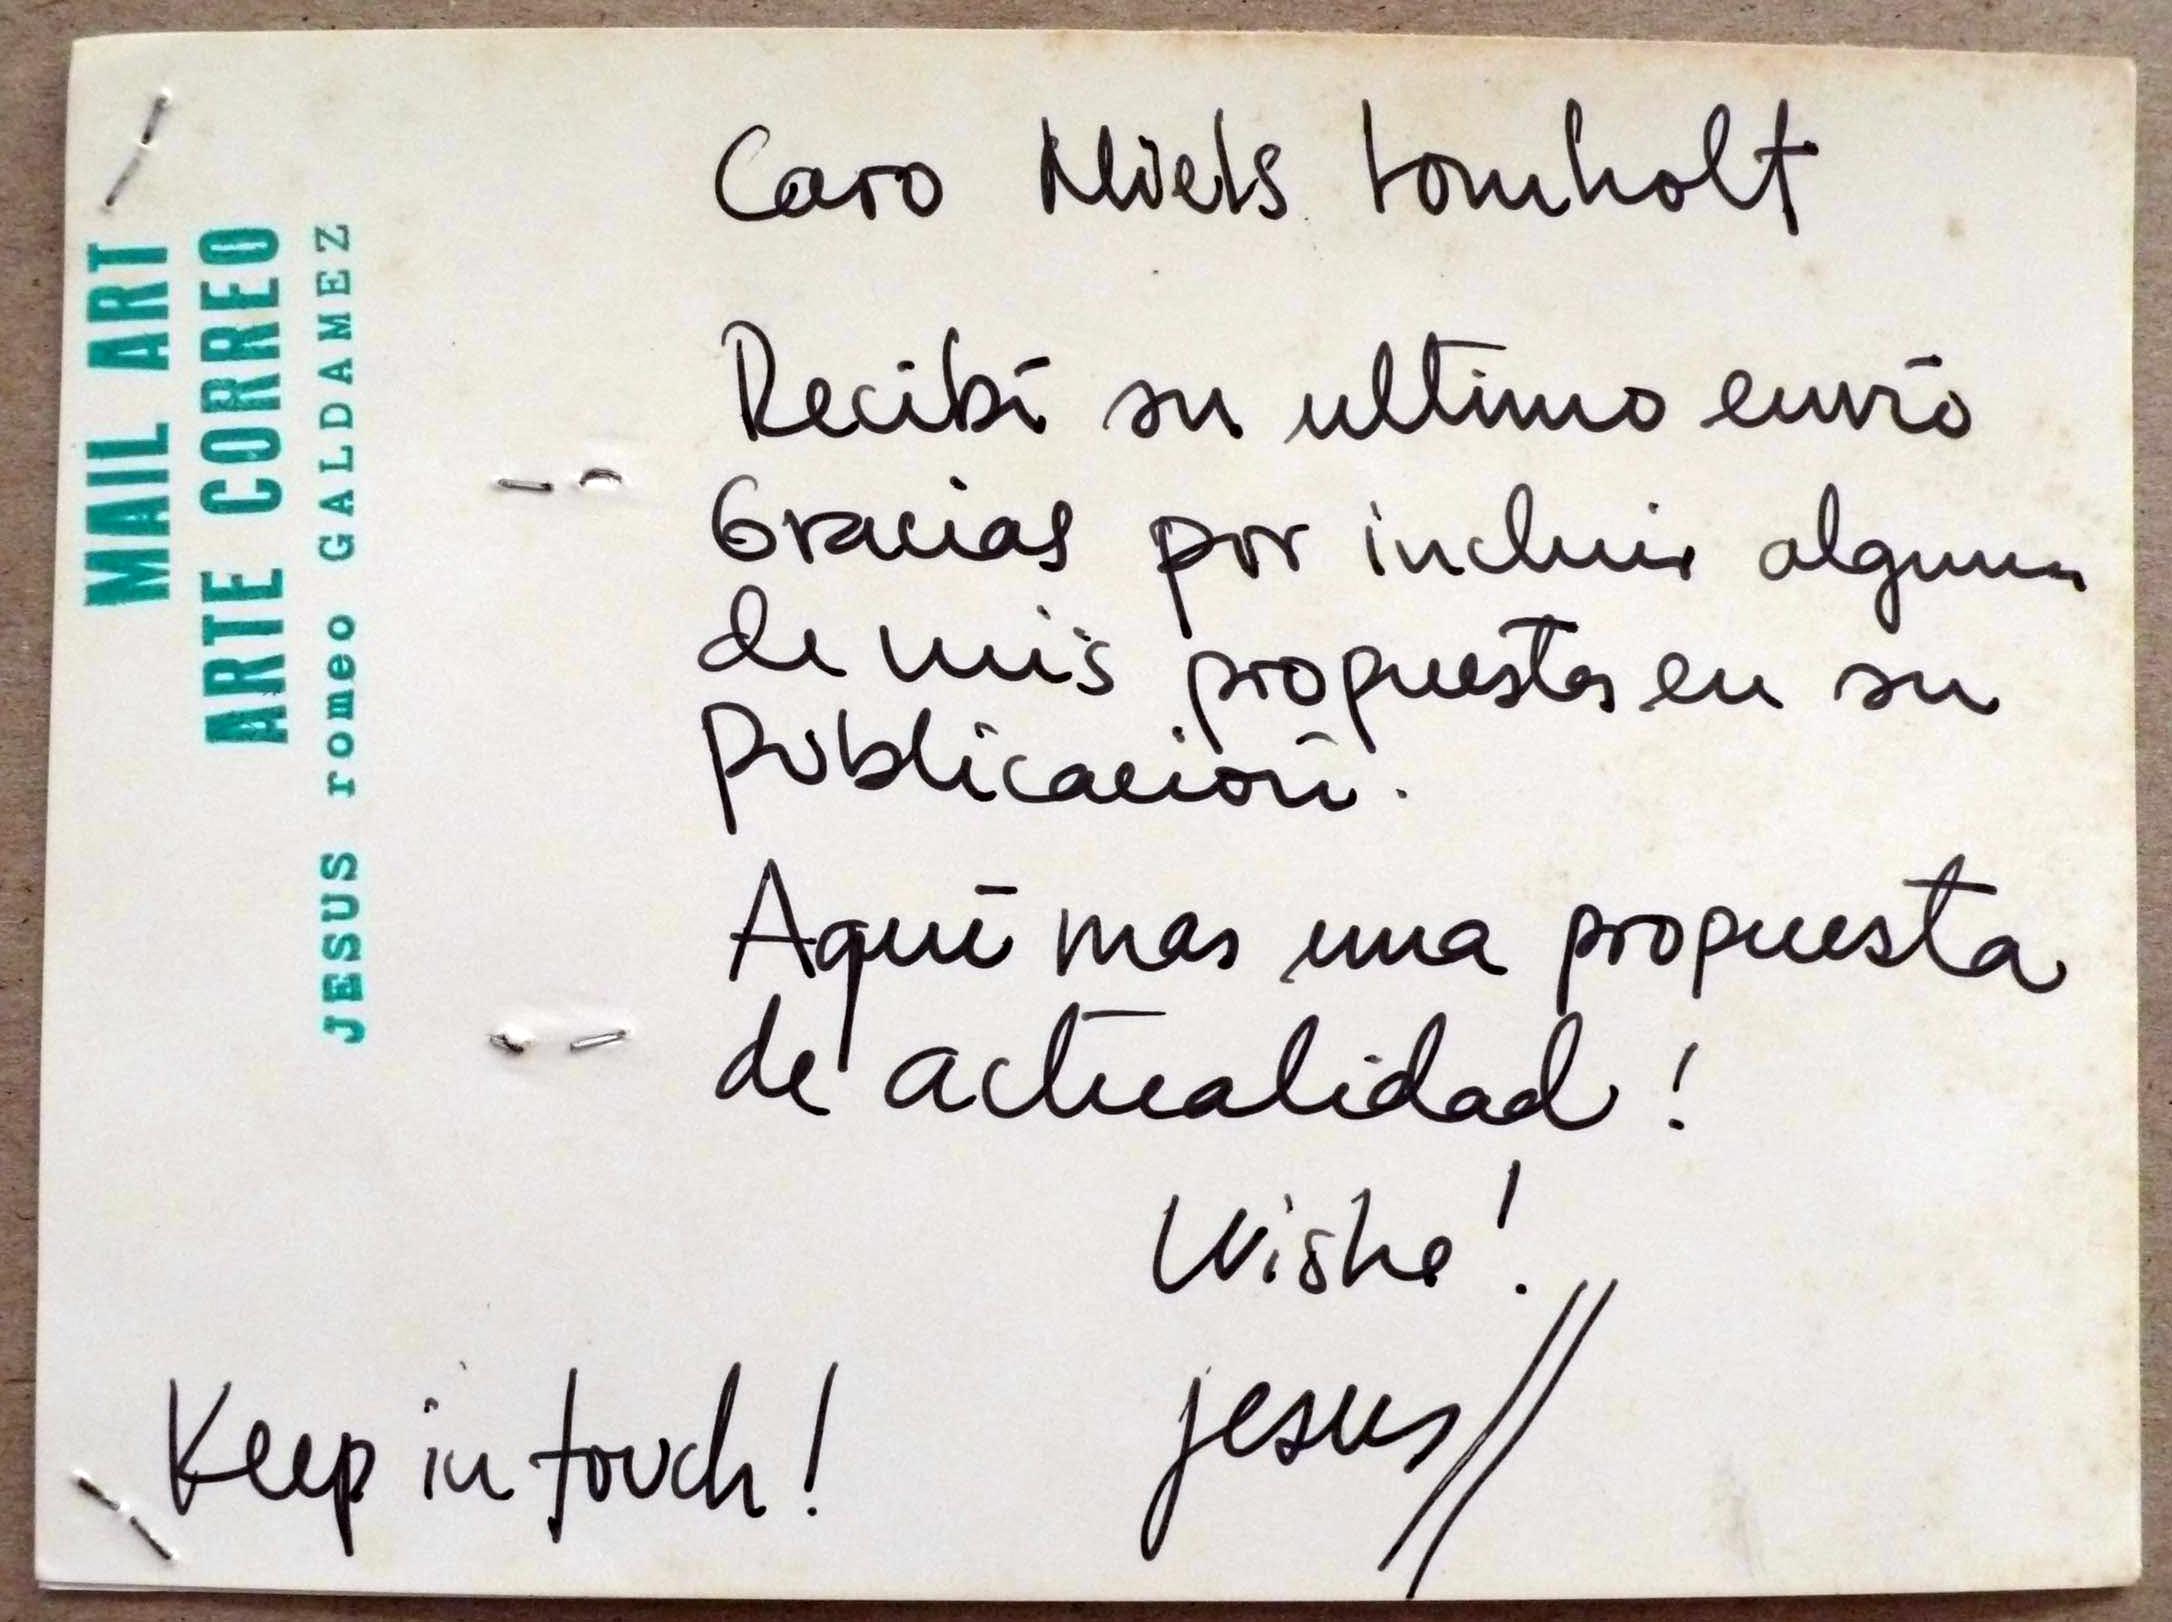 MAIL ART
ARTE CORREO
JESUS romeo GALDAMEZ
Caro Niels Lomholt
Recibí su ultimo envío
Gracias por incluir alguna
de mis propuestas en su
publicación.
Aquí mas una propuesta
de actualidad!
Wishe!
jesus
Keep in touch!